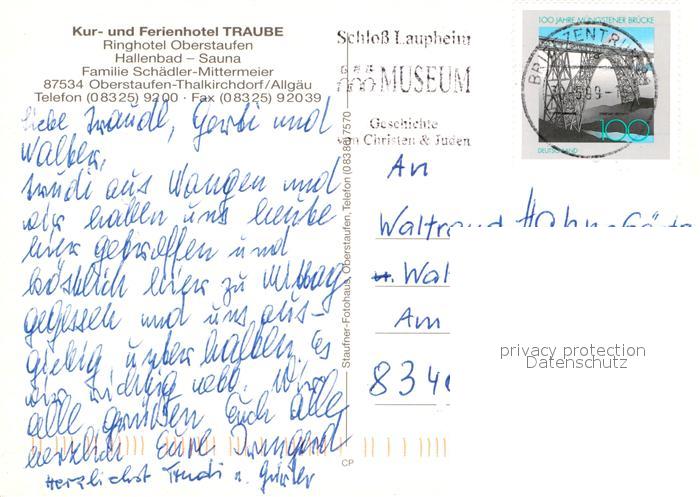 Kur- und Ferienhotel TRAUBE
Ringhotel Oberstaufen
Hallenbad – Sauna
Familie Schädler-Mittermeier
87534 Oberstaufen-Thalkirchdorf/Allgäu
Telefon (08325) 9200 · Fax (08325) 92039
Liebe Traudl, Gerti und
Walter,
Trudi aus Wangen und
wir haben uns heute
hier getroffen und
köstlich hier zu Mittag
gegessen und uns aus-
giebig unterhalten. Es
war richtig nett. Wir
alle grüßen Euch alle
herzlich Eure Irmgard
Herzlichst Trudi u. Günter
Staufner-Fotohaus, Oberstaufen, Telefon (08386) 7570
CP
Schloß Laupheim
MUSEUM
Geschichte
von Christen & Juden
100 JAHRE MÜNGSTENER BRÜCKE
BRIEFZENTRUM
100
DEUTSCHLAND
An
Waltraud Hahn
u. Wal
Am
834
privacy protection
Datenschutz